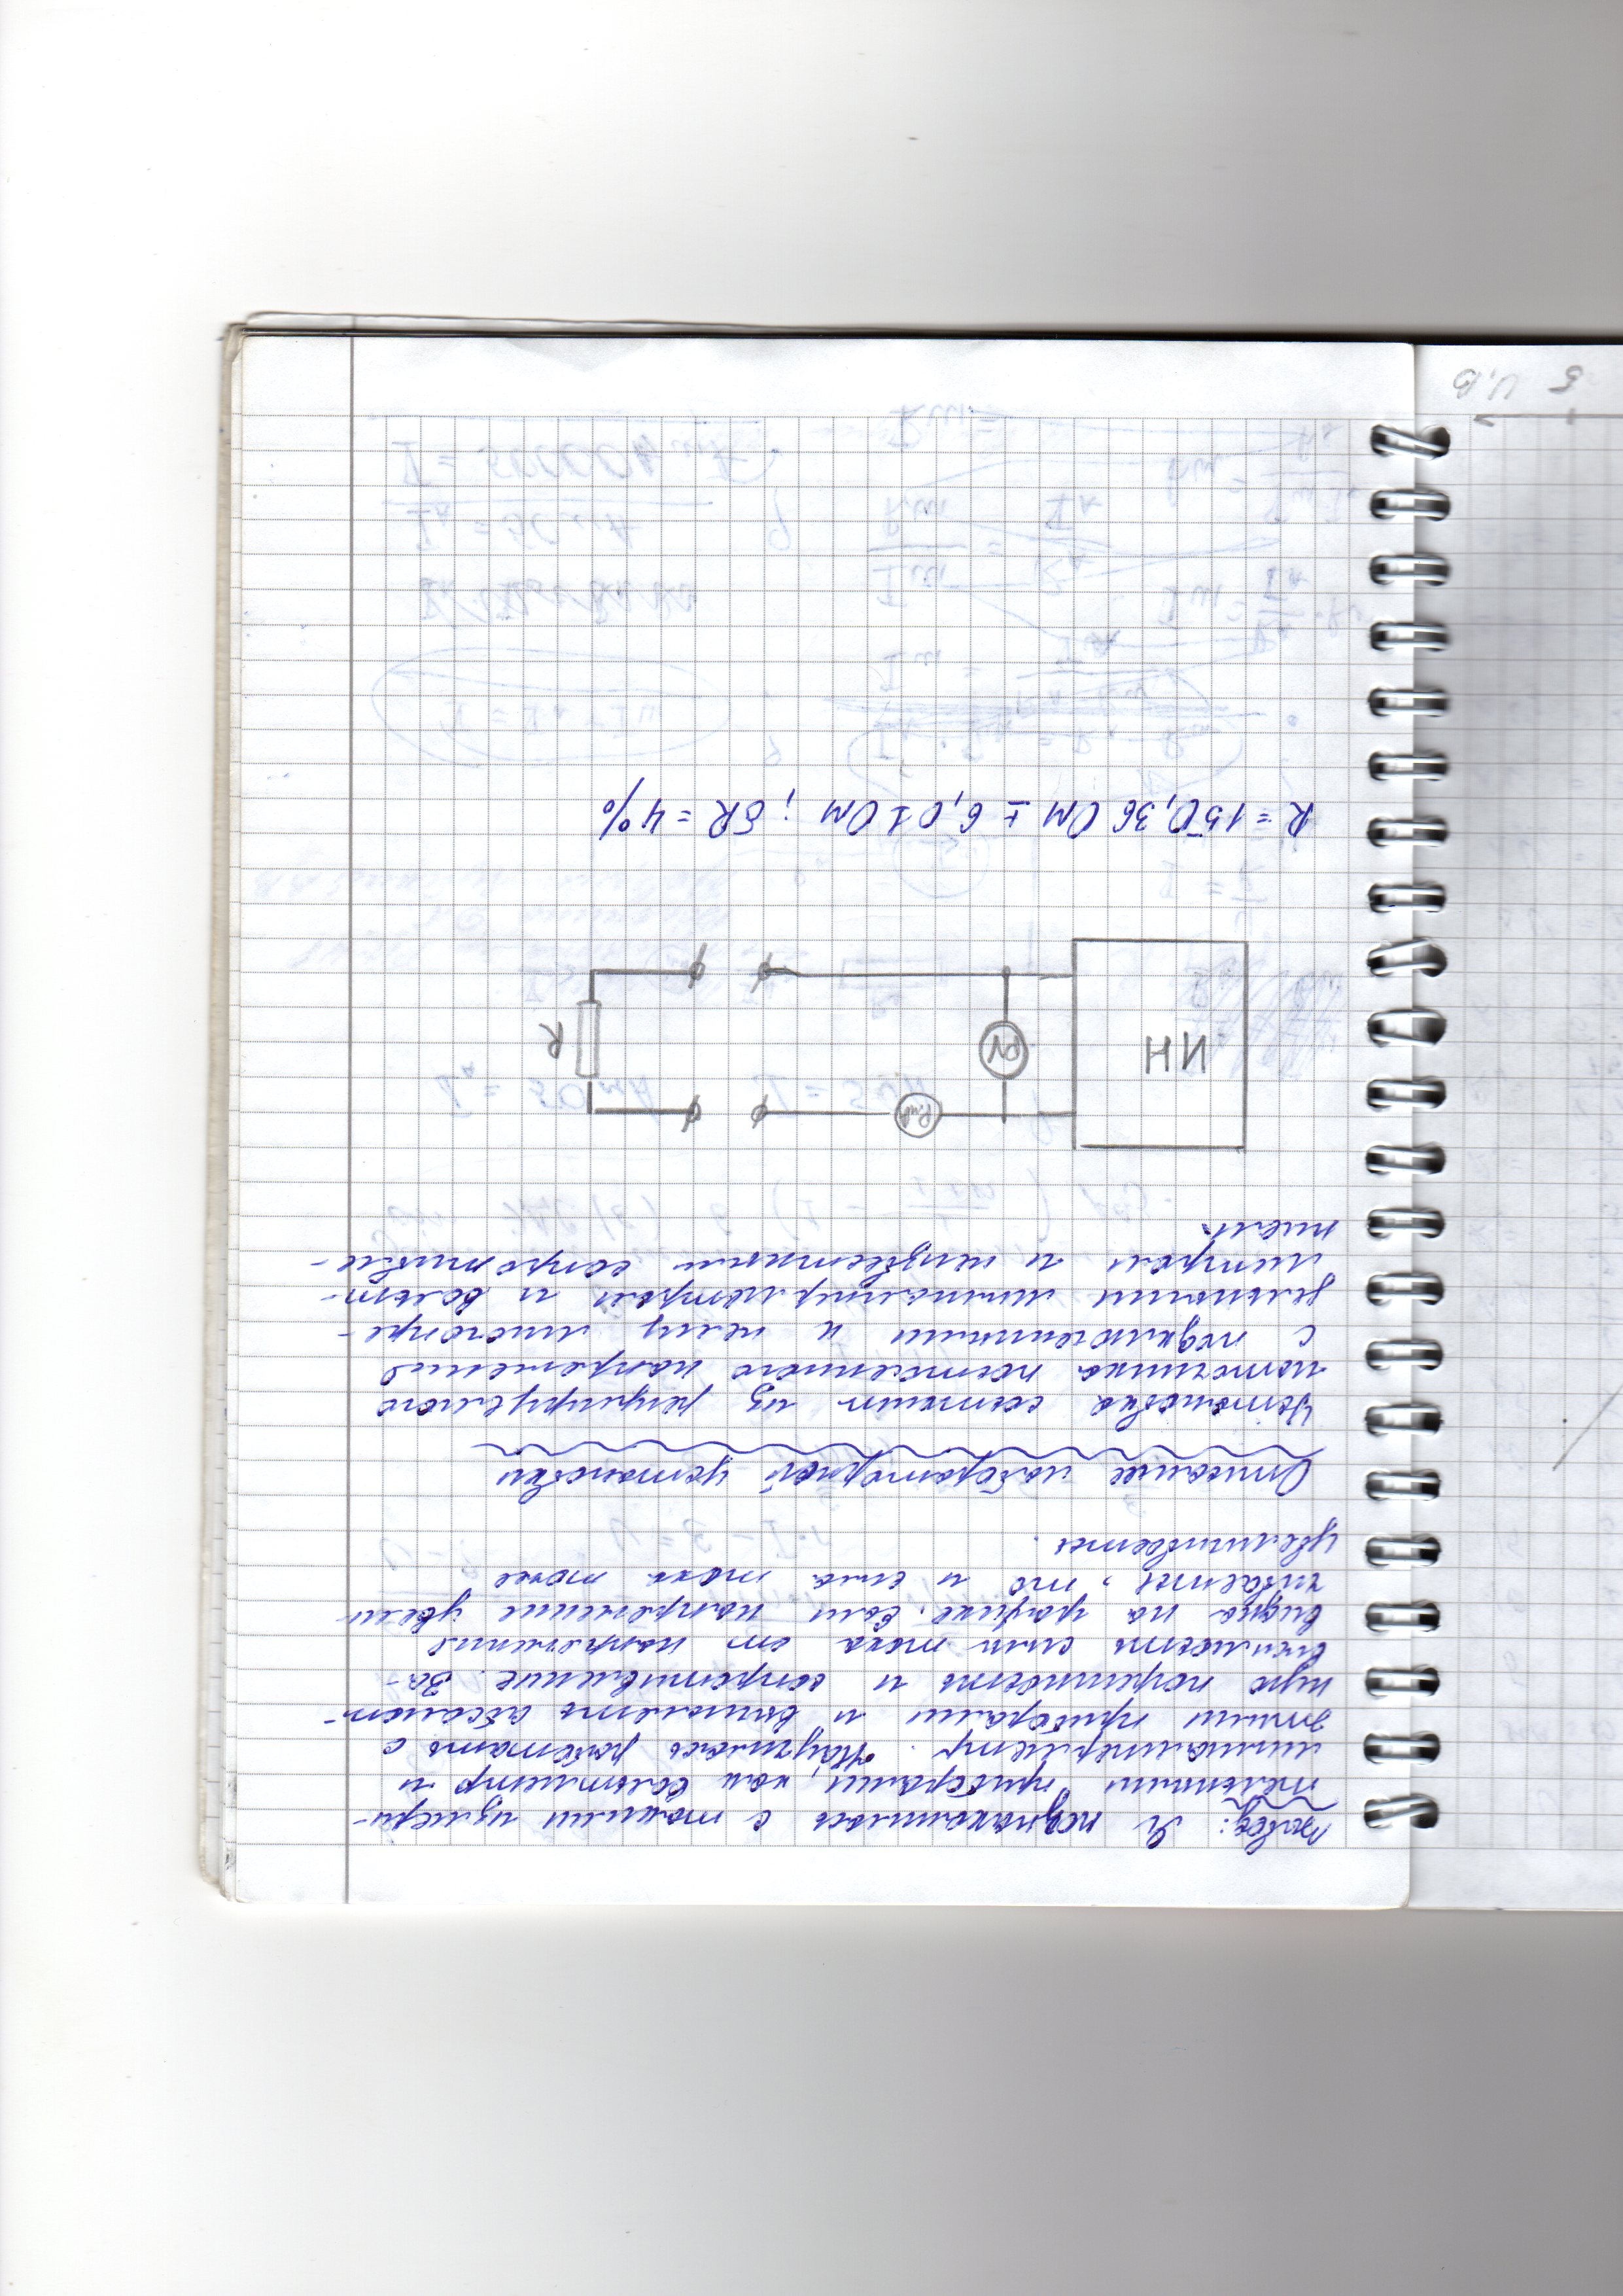 Вывод: Я познакомилась с такими измери-
тельными приборами, как вольтметр и
милиамперметр. Научилась работать с
этими приборами и вычислять абсолют-
ную погрешность и сопротивление. За-
висимость силы тока от напряжения
видна на графике. Если напряжение увели-
чивается, то и сила тока тоже
увеличивается.
Описание лабораторной установки
Установка состоит из регулируемого
источника постоянного напряжения
с подключенными к нему многопре-
дельными милиамперметром и вольт-
метром и неизвестным сопротивле-
нием.
PmA
ИН
PV
R
R = 150,36 Ом ± 6,01 Ом ; δR = 4%
5 U,В